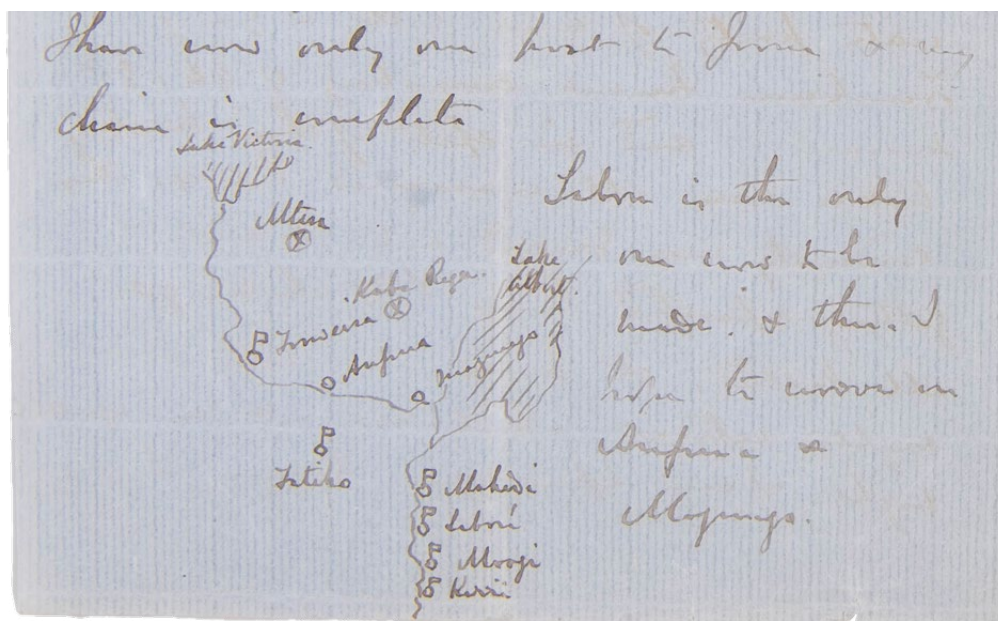 I have now only one post to form & my
chain is complete
Lake Victoria.
Mtesa
Kaba Rega.
Lake
Albert.
Anfina
Magungo
Fatiko
Makedi
Laboré
Moogi
Kerri
Labore is the only
one now to be
made. & then. I
hope to move on
Anfina &
Magungo.